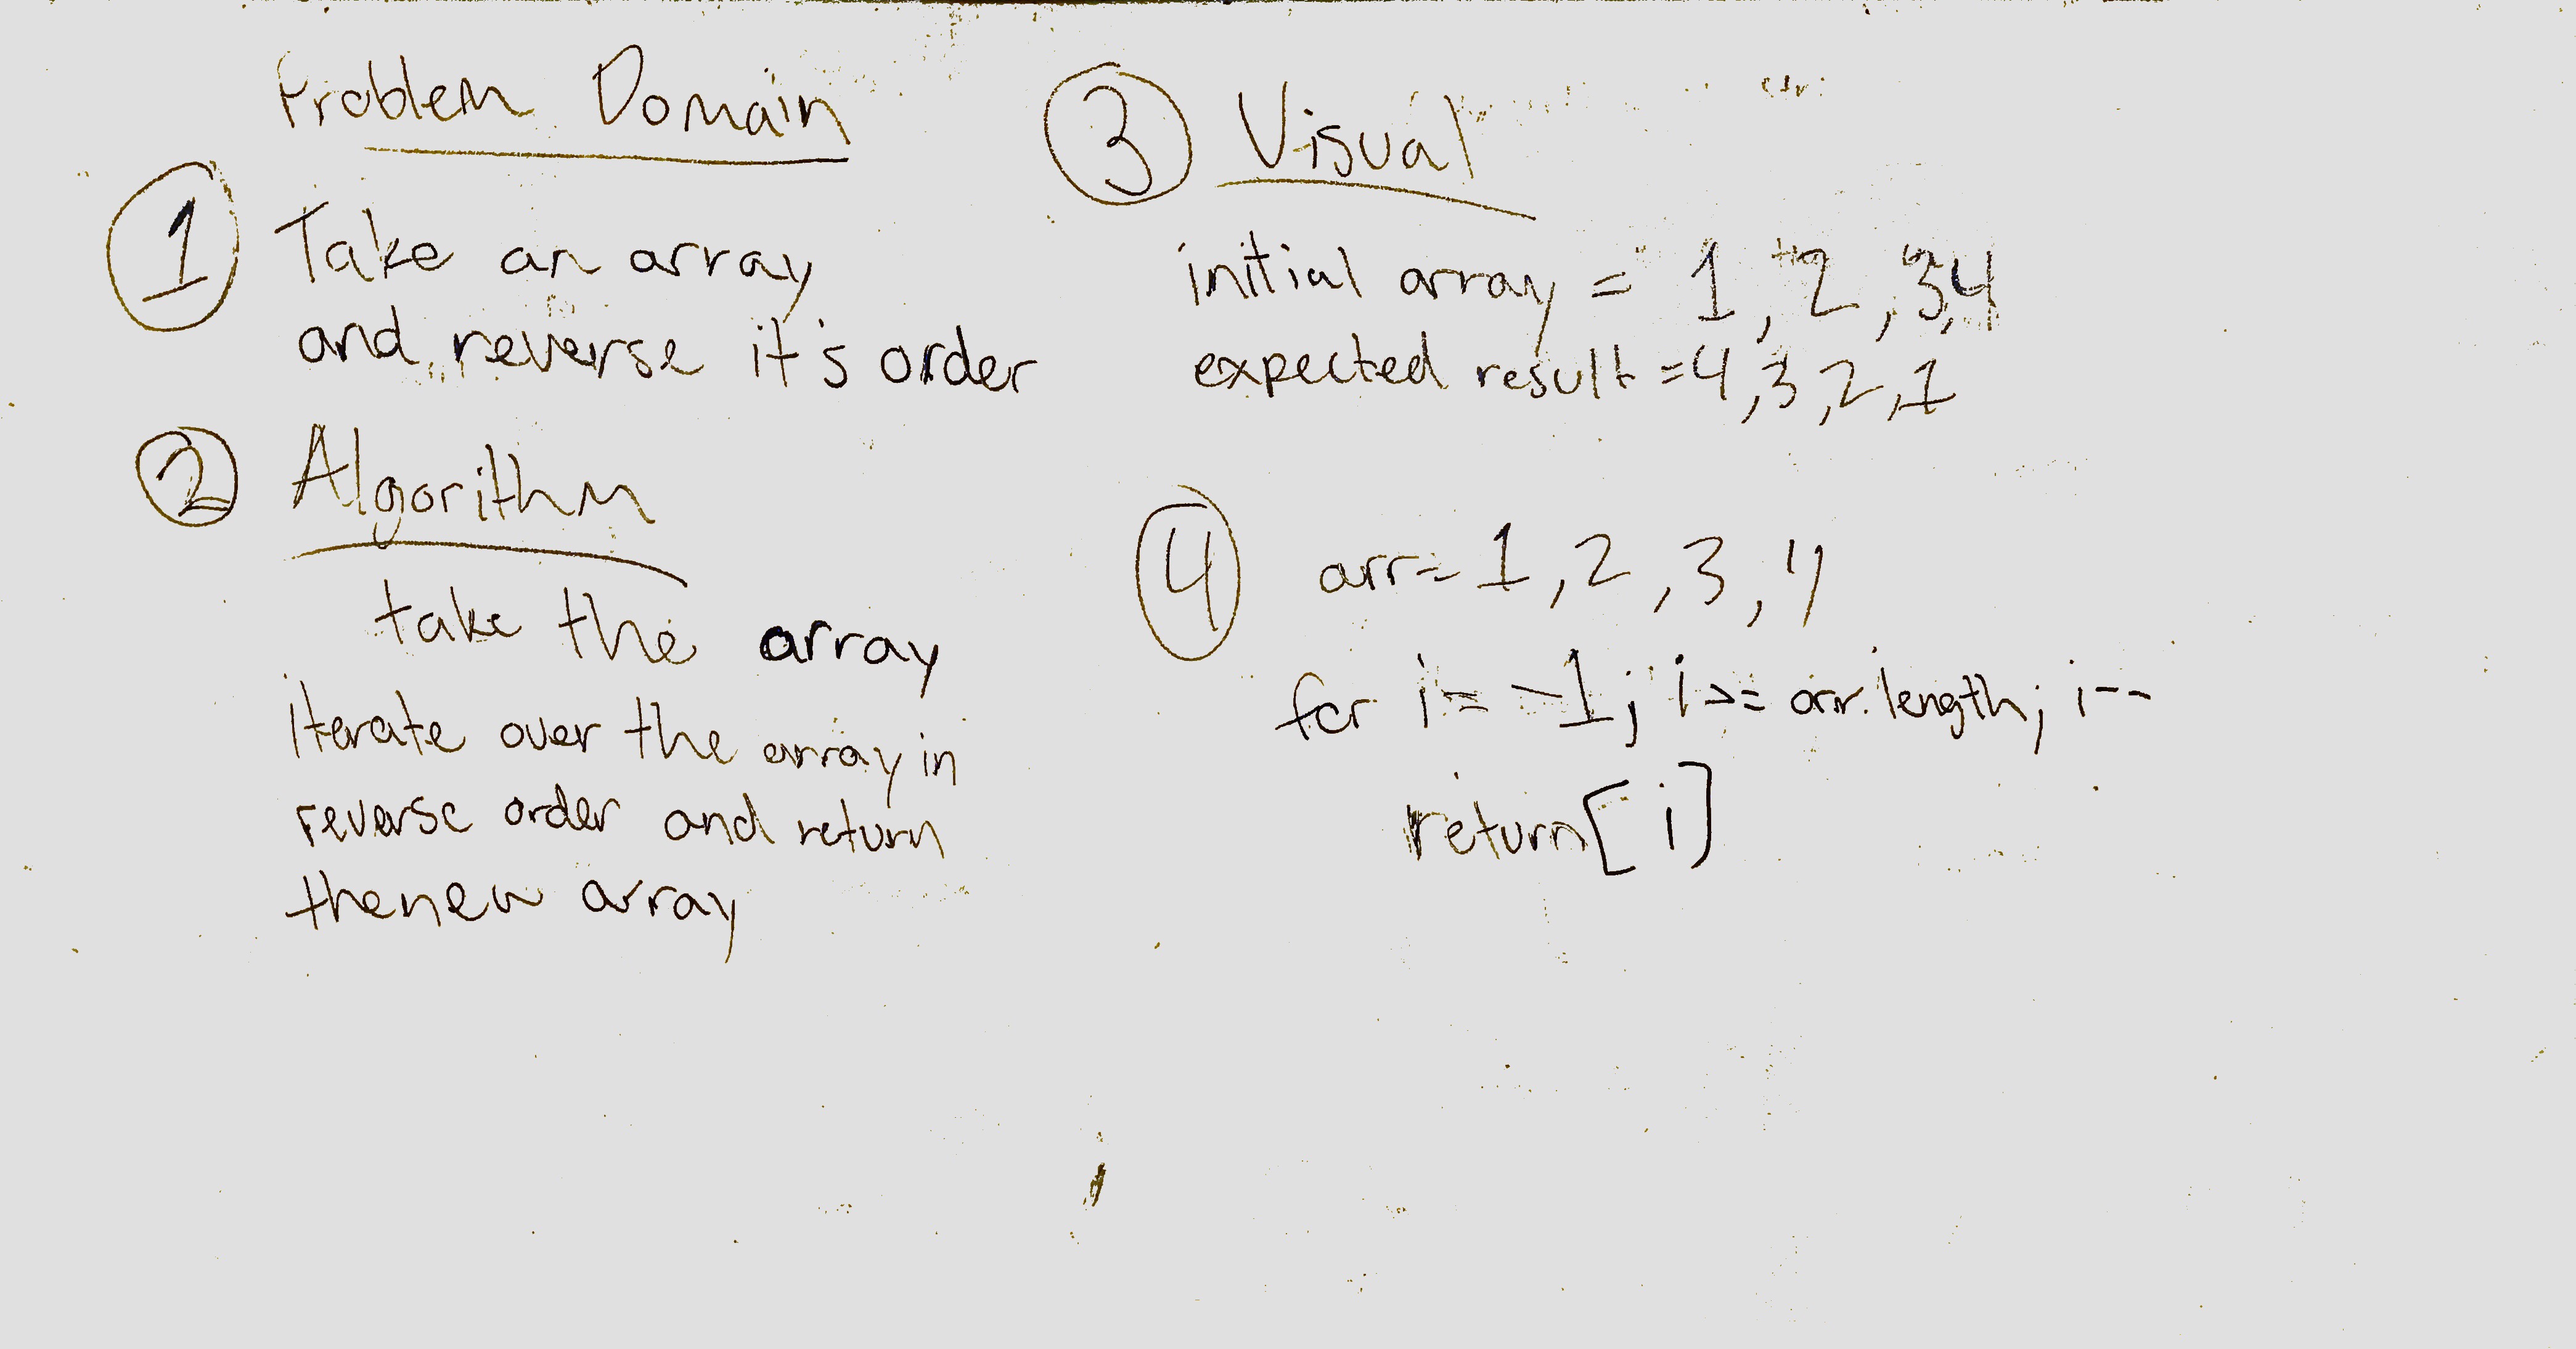 Problem Domain
1 Take an array
and reverse it's order
2 Algorithm
take the array
iterate over the array in
reverse order and return
the new array
3 Visual
initial array = 1, 2, 3, 4
expected result = 4, 3, 2, 1
4 arr = 1, 2, 3, 4
for i = -1; i >= arr.length; i--
return [i]